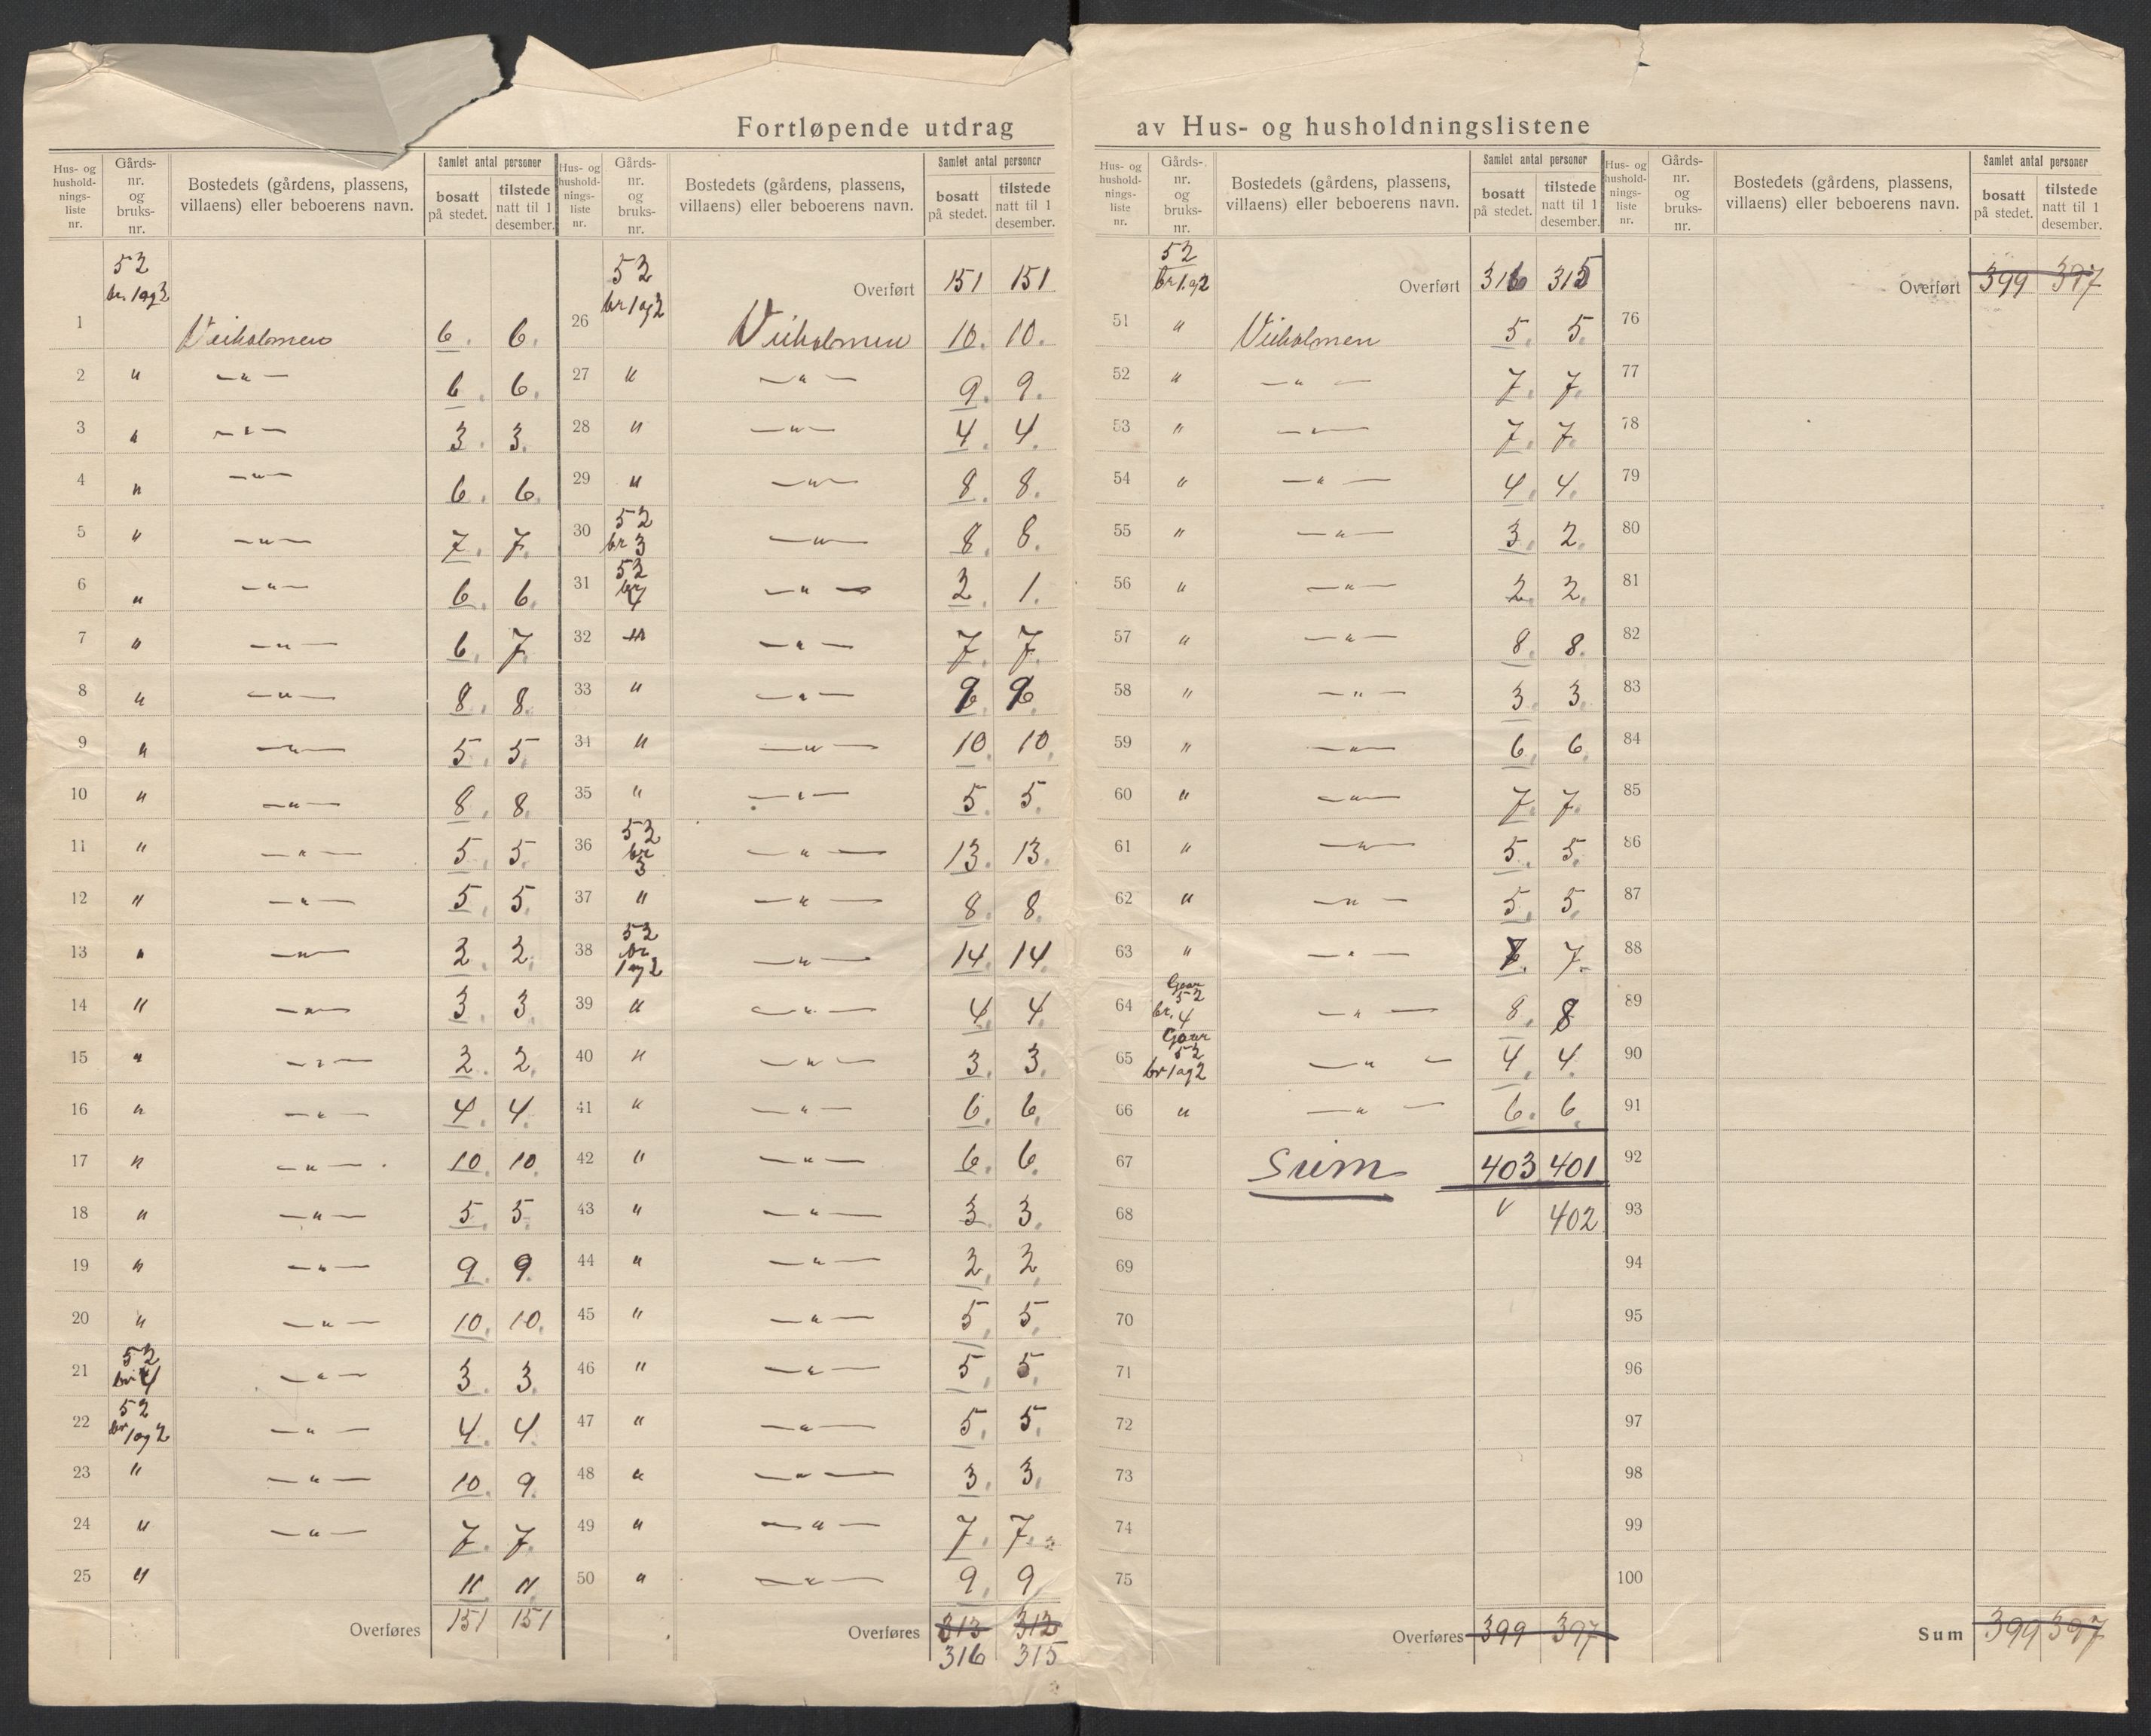 Fortløpende utdrag av Hus- og husholdningslistene
Hus- og hushold-nings-liste nr. | Gårds-nr. og bruks-nr. | Bostedets (gårdens, plassens, villaens) eller beboerens navn. | Samlet antal personer | bosatt på stedet. | tilstede natt til 1 desember.
52 br. 1 og 2
1 Veiholmen 6. 6.
2 " — " — 6. 6.
3 " — " — 3. 3.
4 " — " — 6. 6.
5 " — " — 7. 7.
6 " — " — 6. 6.
7 " — " — 6. 7.
8 " — " — 8. 8.
9 " — " — 5. 5.
10 " — " — 8. 8.
11 " — " — 5. 5.
12 " — " — 5. 5.
13 " — " — 2. 2.
14 " — " — 3. 3.
15 " — " — 2. 2.
16 " — " — 4. 4.
17 " — " — 10. 10.
18 " — " — 5. 5.
19 " — " — 9. 9.
20 " — " — 10. 10.
21 52 br 4 — " — 3. 3.
22 52 br 1 og 2 — " — 4. 4.
23 " — " — 10. 9.
24 " — " — 7. 7.
25 " 11. 11.
Overføres 151 151
Hus- og hushold-nings-liste nr. | Gårds-nr. og bruks-nr. | Bostedets (gårdens, plassens, villaens) eller beboerens navn. | Samlet antal personer | bosatt på stedet. | tilstede natt til 1 desember.
52 br 1 og 2 Overført 151 151
26 Veiholmen 10. 10.
27 " — " — 9. 9.
28 " — " — 4. 4.
29 " — " — 8. 8.
30 52 br 3 — " — 8. 8.
31 52 br 4 — " — 2. 1.
32 " — " — 7. 7.
33 " — " —
34 " — " — 10. 10.
35 " — " — 5. 5.
36 52 br 3 — " — 13. 13.
37 " — " — 8. 8.
38 52 br 1 og 2 — " — 14. 14.
39 " — " — 4. 4.
40 " — " — 3. 3.
41 " — " — 6. 6.
42 " — " — 6. 6.
43 " — " — 3. 3.
44 " — " — 2. 2.
45 " — " — 5. 5.
46 " — " — 5. 5.
47 " — " — 5. 5.
48 " — " — 3. 3.
49 " — " — 7. 7.
50 " — " — 9. 9
Overføres 313 312
316 315
Hus- og hushold-nings-liste nr. | Gårds-nr. og bruks-nr. | Bostedets (gårdens, plassens, villaens) eller beboerens navn. | Samlet antal personer | bosatt på stedet. | tilstede natt til 1 desember.
52 br 1 og 2 Overført 316 315
51 " Veiholmen 5. 5.
52 " — " — 7. 7.
53 " — " — 7. 7.
54 " — " — 4. 4.
55 " — " — 3. 2.
56 " — " — 2. 2.
57 " — " — 8. 8.
58 " — " — 3. 3.
59 " — " — 6. 6.
60 " — " — 7. 7.
61 " — " — 5. 5.
62 " — " — 5. 5.
63 " — " — 7. 7.
64 52 br. 4 — " — 8. 8
65 52 br 1 og 2 — " — 4. 4.
66 " — " — 6. 6.
67 Sum 403 401
68 v 402
69
70
71
72
73
74
75
Overføres 399 397
Hus- og hushold-nings-liste nr. | Gårds-nr. og bruks-nr. | Bostedets (gårdens, plassens, villaens) eller beboerens navn. | Samlet antal personer | bosatt på stedet. | tilstede natt til 1 desember.
Overført 399 397
76
77
78
79
80
81
82
83
84
85
86
87
88
89
90
91
92
93
94
95
96
97
98
99
100
Sum 399 397